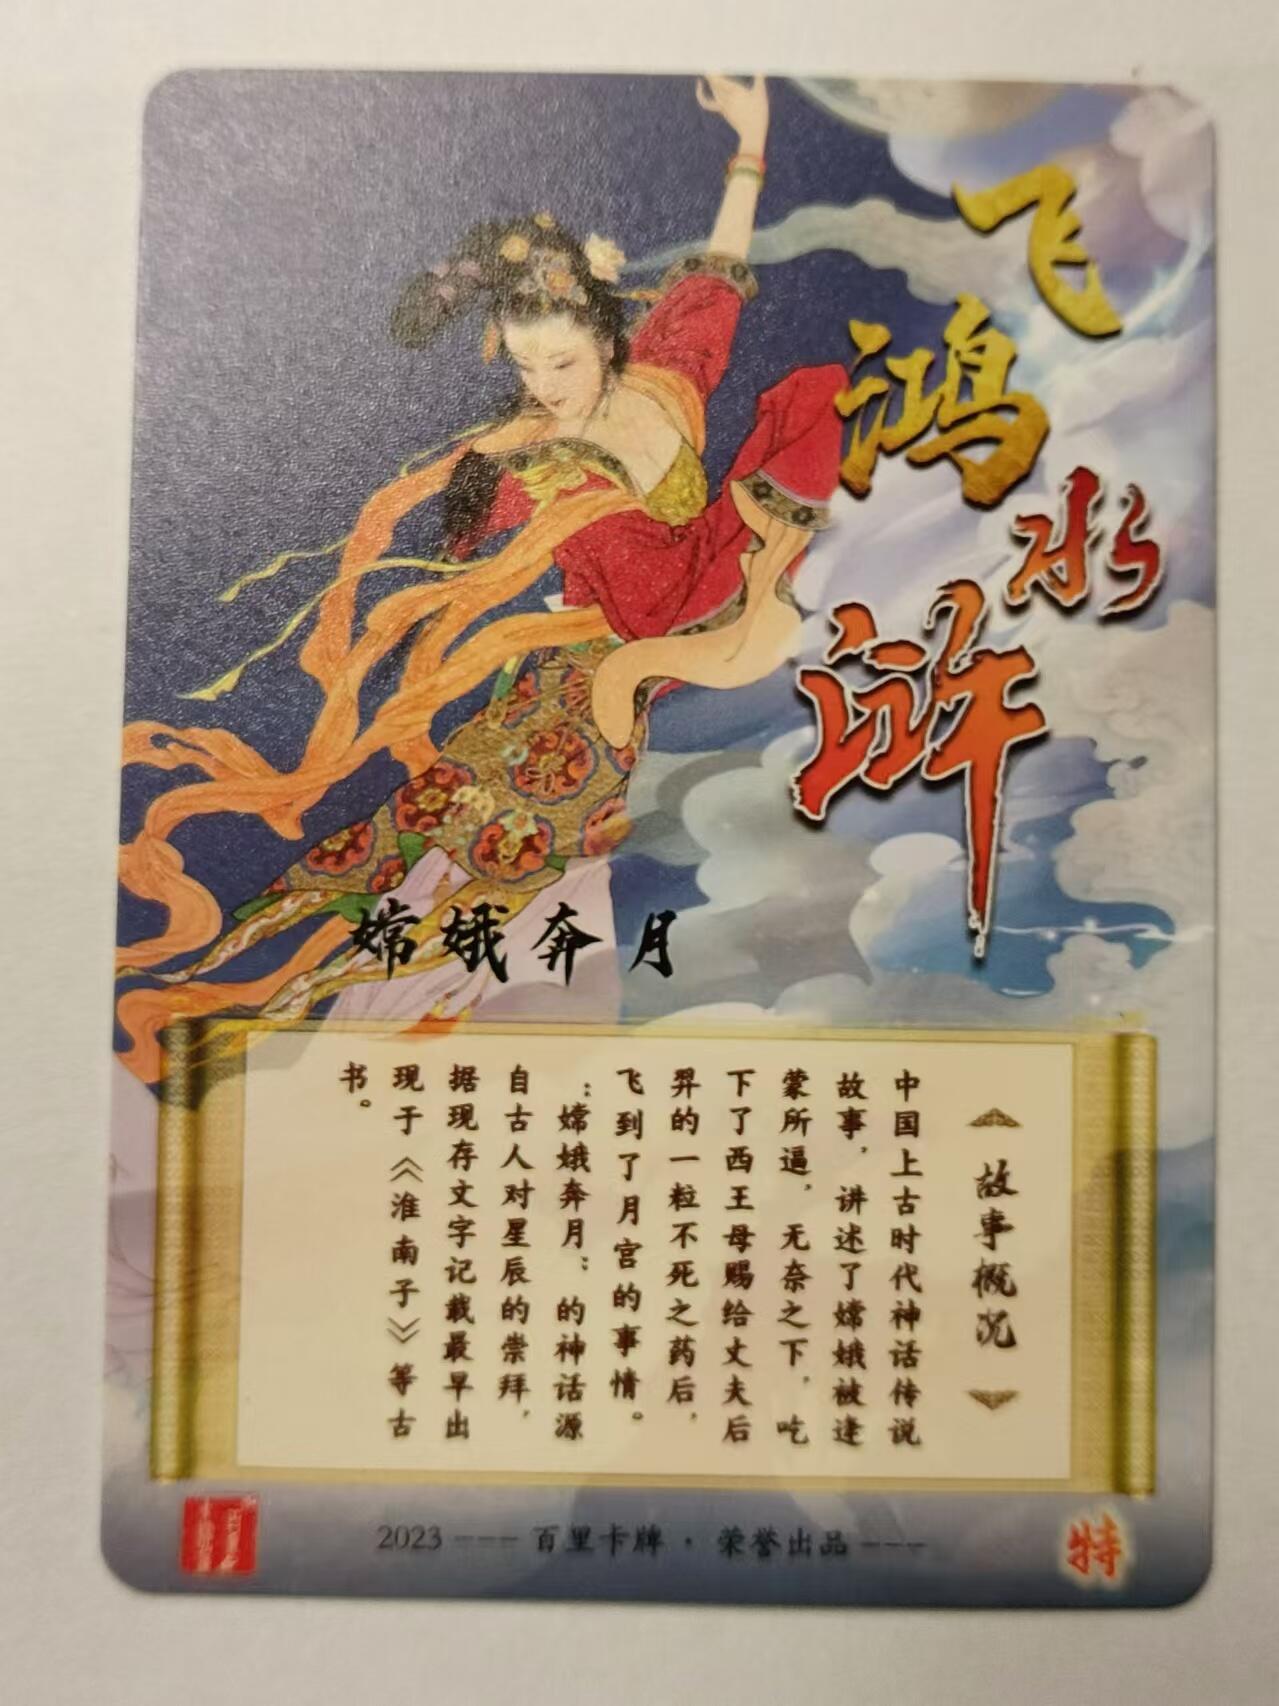 飞鸿
水浒
嫦娥奔月
故事概况
中国上古时代神话传说
故事，讲述了嫦娥被逢
蒙所逼，无奈之下，吃
下了西王母赐给丈夫后
羿的一粒不死之药后，
飞到了月宫的事情。
：嫦娥奔月；的神话源
自古人对星辰的崇拜，
据现存文字记载最早出
现于《淮南子》等古
书。
2023 --- 百里卡牌 · 荣誉出品 ---
特